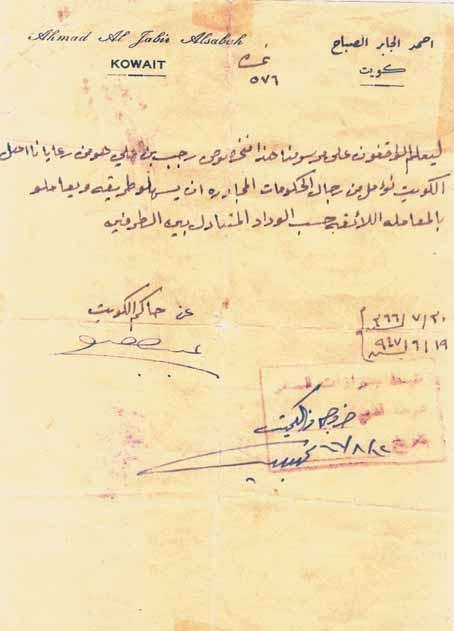 Ahmad Al Jabir Alsabah
KOWAIT
احمد الجابر الصباح
كويت
نمرة
٥٧٦
ليعلم الواقفون على مرسومنا هذا رجب بن علي هو من رعايانا اهل
الكويت نؤمل من رجال الحكومات المجاوره ان يسهلو طريقه ويعاملو
بالمعامله اللائقه حسب الوداد المتبادل بين الطرفين
٣٠/٧/٣٦٦
١٩/٦/٩٤٧
عن حاكم الكويت
خروج من الكويت